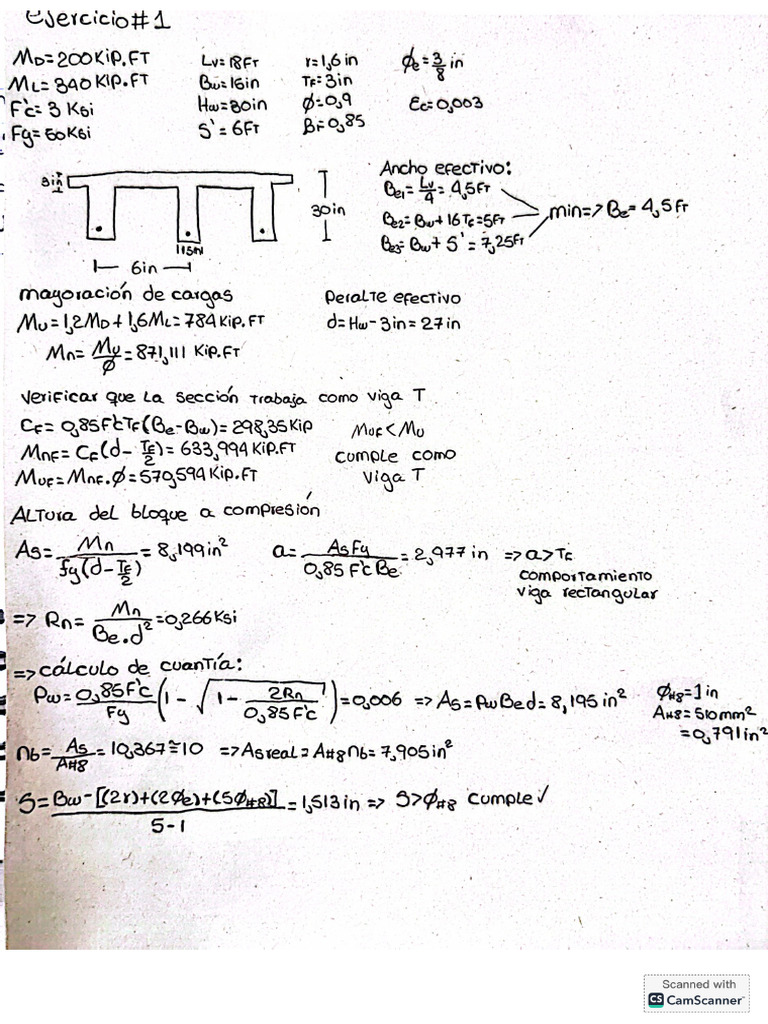 Ejercicio #1
MD=200 KiP.FT Lv=18FT r=1,6 in ϕe=3/8 in
ML=340 KIP.FT Bw=15in TF=3in
F'c=3 Ksi Hw=30in ϕ=0,9 Ec=0,003
Fy=60Ksi S'=6FT BF=0,85
Ancho efectivo:
3in
30in
15in
6in
Be1=Lv/4=4,5FT
Be2=Bw+16TF=5FT
Be3=Bw+S'=7,25FT
min=>Be=4,5FT
mayoración de cargas
Mu=1,2MD+1,6ML=784 KIP.FT
Mn=Mu/ϕ=871,111 KIP.FT
Peralte efectivo
d=Hw-3in=27in
Verificar que La sección Trabaja como viga T
CF=0,85F'cTF(Be-Bw)=298,35KIP
MnF=CF(d-TF/2)=633,994KIP.FT
MuF=MnF.ϕ=570,594 KIP.FT
MuF<Mu
cumple como
viga T
ALTura del bloque a compresión
As=Mn/fy(d-TF/2)=8,199in² a=AsFy/0,85F'cBe=2,977in =>a>TF
comportamiento
viga rectangular
=> Rn=Mn/Be.d²=0,266Ksi
=>cálculo de cuantía:
Pw=0,85F'c/Fy(1-√(1-2Rn/0,85F'c))=0,006 =>As=PwBed=8,195in²
ϕ#8=1in
A#8=510mm²
=0,791in²
nb=As/A#8=10,367≅10 =>Asreal=A#8nb=7,905in²
S=Bw-[(2r)+(2ϕe)+(5ϕ#8)]/5-1=1,513in => S>ϕ#8 cumple✓
Scanned with
CS CamScanner